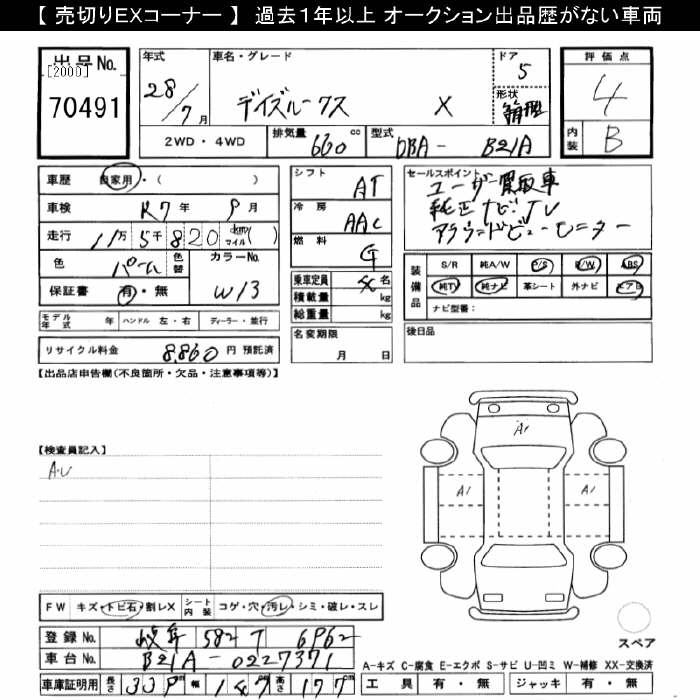 【 売切りEXコーナー 】 過去1年以上 オークション出品歴がない車両
出品No.
[2000]
70491
年式 車名・グレード ドア
28/7月 デイズルークス X 5
形状 箱型
2WD・4WD 排気量 660 cc 型式 DBA- B21A
評価点
4
内装 B
車歴 自家用・( )
車検 R7年 9月
走行 11万 5千 820 (km/マイル)( )
色 パール 色替 カラーNo.
保証書 有・無 W13
モデル年式 年 ハンドル 左・右 ディーラー・並行
リサイクル料金 8,860 円 預託済
シフト AT
冷房 AAC
燃料 G
乗車定員 名
積載量 kg
総重量 kg
名変期限
月 日
セールスポイント
ユーザー買取車
純正ナビTV
アラウンドビューモニター
装備品 S/R 純A/W P/S P/W ABS
純TV 純ナビ 革シート 外ナビ エアB
ナビ型番:
後日品
【出品店申告欄(不良箇所・欠品・注意事項等)】
【検査員記入】
A・U
A1
A1 A1
FW キズ・トビ石・割レX シート内装 コゲ・穴・汚レ・シミ・破レ・スレ
登録No. 岐阜 582 T 6962
車台No. B21A-0227371
車庫証明用 長さ 339 cm 幅 147 cm 高さ 177 cm
スペア
A-キズ C-腐食 E-エクボ S-サビ U-凹ミ W-補修 XX-交換済
工具 有・無 ジャッキ 有・無